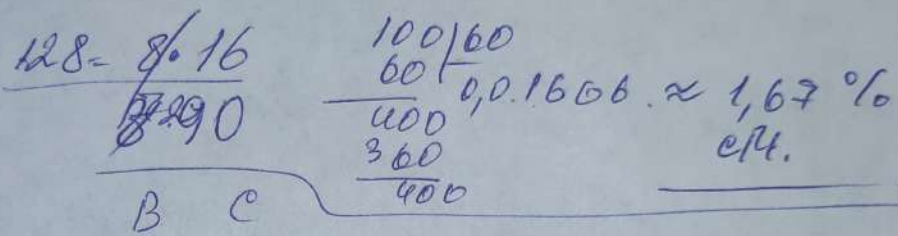 128 = 8 · 16
90
100 | 60
60
400
360
400
0,01666 ≈ 1,67 %
B C